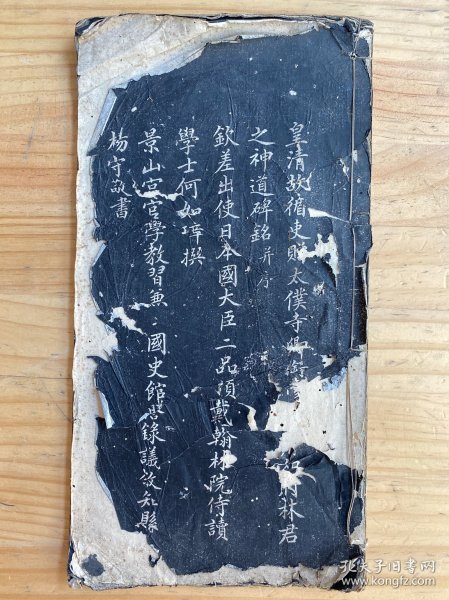 皇清故循吏贈太僕寺卿銜 知府林君
之神道碑銘 并序
欽差出使日本國大臣二品頂戴翰林院侍讀
學士何如璋撰
景山宮官學教習兼 國史館謄錄議敘知縣
楊守敬書
孔夫子旧书网
www.kongfz.com